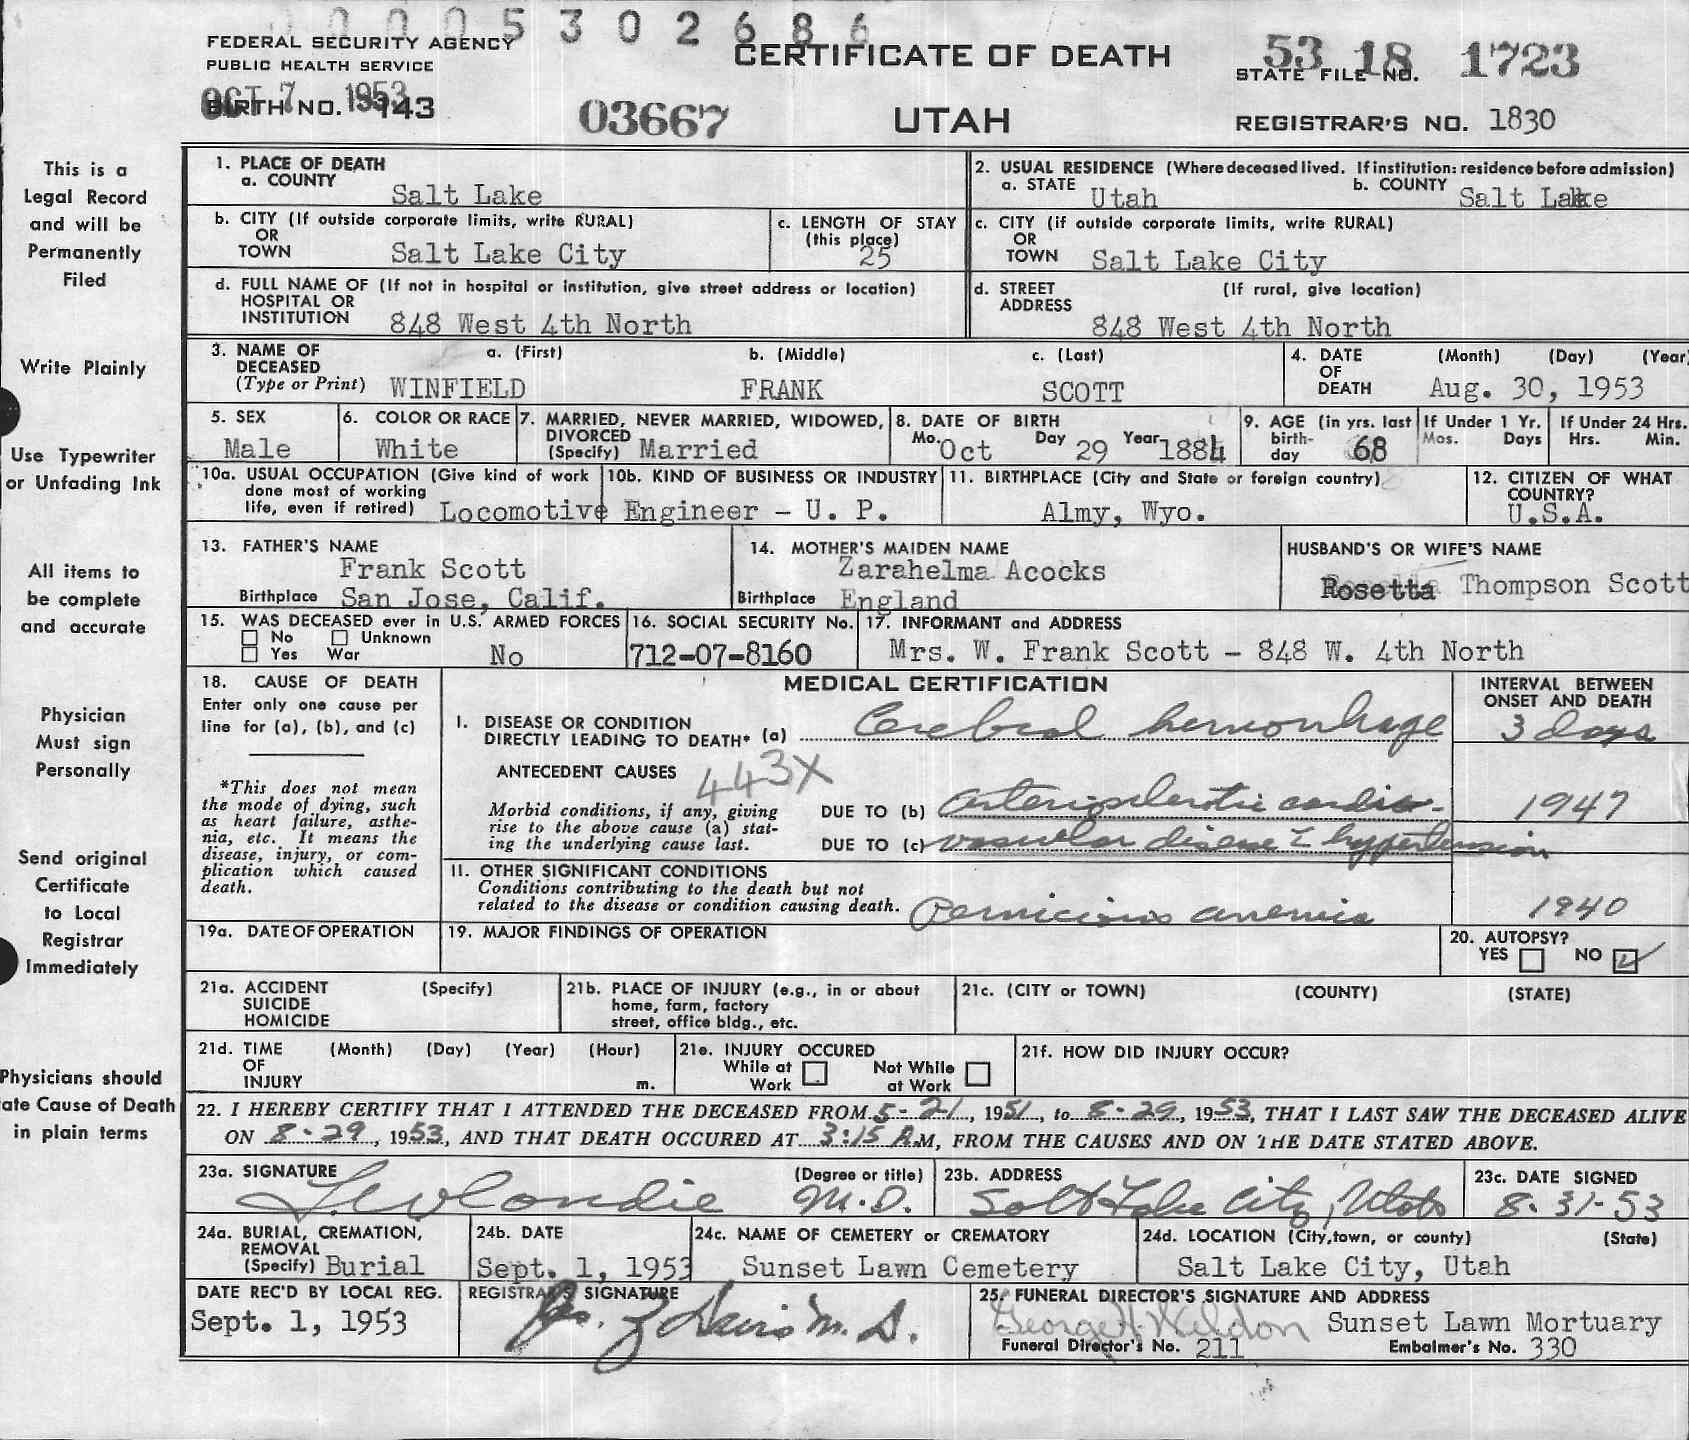 0005302686
FEDERAL SECURITY AGENCY
PUBLIC HEALTH SERVICE
CERTIFICATE OF DEATH
53 18 1723
STATE FILE NO.
OCT 7 1953
BIRTH NO. 143
03667
UTAH
REGISTRAR'S NO. 1830
This is a
Legal Record
and will be
Permanently
Filed
Write Plainly
Use Typewriter
or Unfading Ink
All items to
be complete
and accurate
Physician
Must sign
Personally
Send original
Certificate
to Local
Registrar
Immediately
Physicians should
ate Cause of Death
in plain terms
1. PLACE OF DEATH
a. COUNTY Salt Lake
2. USUAL RESIDENCE (Where deceased lived. If institution: residence before admission)
a. STATE Utah b. COUNTY Salt Lake
b. CITY (If outside corporate limits, write RURAL)
OR
TOWN Salt Lake City
c. LENGTH OF STAY
(this place)
25
c. CITY (if outside corporate limits, write RURAL)
OR
TOWN Salt Lake City
d. FULL NAME OF (If not in hospital or institution, give street address or location)
HOSPITAL OR
INSTITUTION 848 West 4th North
d. STREET (If rural, give location)
ADDRESS
848 West 4th North
3. NAME OF a. (First) b. (Middle) c. (Last)
DECEASED
(Type or Print) WINFIELD FRANK SCOTT
4. DATE (Month) (Day) (Year)
OF
DEATH Aug. 30, 1953
5. SEX
Male
6. COLOR OR RACE
White
7. MARRIED, NEVER MARRIED, WIDOWED,
DIVORCED
(Specify) Married
8. DATE OF BIRTH
Mo. Oct Day 29 Year 1884
9. AGE (in yrs. last
birth-
day 68
If Under 1 Yr.
Mos. Days
If Under 24 Hrs.
Hrs. Min.
10a. USUAL OCCUPATION (Give kind of work
done most of working
life, even if retired) Locomotive Engineer - U. P.
10b. KIND OF BUSINESS OR INDUSTRY
11. BIRTHPLACE (City and State or foreign country)
Almy, Wyo.
12. CITIZEN OF WHAT
COUNTRY?
U.S.A.
13. FATHER'S NAME
Frank Scott
Birthplace San Jose, Calif.
14. MOTHER'S MAIDEN NAME
Zarahelma Acocks
Birthplace England
HUSBAND'S OR WIFE'S NAME
Rosetta Thompson Scott
15. WAS DECEASED ever in U.S. ARMED FORCES
No Unknown
Yes War No
16. SOCIAL SECURITY No.
712-07-8160
17. INFORMANT and ADDRESS
Mrs. W. Frank Scott - 848 W. 4th North
18. CAUSE OF DEATH
Enter only one cause per
line for (a), (b), and (c)
*This does not mean
the mode of dying, such
as heart failure, asthe-
nia, etc. It means the
disease, injury, or com-
plication which caused
death.
MEDICAL CERTIFICATION
INTERVAL BETWEEN
ONSET AND DEATH
I. DISEASE OR CONDITION
DIRECTLY LEADING TO DEATH* (a) Cerebral hemorrhage 3 days
ANTECEDENT CAUSES 443X
Morbid conditions, if any, giving
rise to the above cause (a) stat-
ing the underlying cause last.
DUE TO (b) arteriosclerotic cardio- 1947
DUE TO (c) vascular disease c hypertension
11. OTHER SIGNIFICANT CONDITIONS
Conditions contributing to the death but not
related to the disease or condition causing death. Pernicious anemia 1940
19a. DATE OF OPERATION
19. MAJOR FINDINGS OF OPERATION
20. AUTOPSY?
YES NO
21a. ACCIDENT (Specify)
SUICIDE
HOMICIDE
21b. PLACE OF INJURY (e.g., in or about
home, farm, factory
street, office bldg., etc.
21c. (CITY or TOWN) (COUNTY) (STATE)
21d. TIME (Month) (Day) (Year) (Hour)
OF
INJURY m.
21e. INJURY OCCURED
While at Not While
Work at Work
21f. HOW DID INJURY OCCUR?
22. I HEREBY CERTIFY THAT I ATTENDED THE DECEASED FROM 5-21, 1951, to 8-29, 1953, THAT I LAST SAW THE DECEASED ALIVE
ON 8-29, 1953, AND THAT DEATH OCCURED AT 3:15 A.M, FROM THE CAUSES AND ON THE DATE STATED ABOVE.
23a. SIGNATURE (Degree or title)
M.D.
23b. ADDRESS
Salt Lake City, Utah
23c. DATE SIGNED
8-31-53
24a. BURIAL, CREMATION,
REMOVAL
(Specify) Burial
24b. DATE
Sept. 1, 1953
24c. NAME OF CEMETERY or CREMATORY
Sunset Lawn Cemetery
24d. LOCATION (City, town, or county) (State)
Salt Lake City, Utah
DATE REC'D BY LOCAL REG.
Sept. 1, 1953
REGISTRAR'S SIGNATURE
25. FUNERAL DIRECTOR'S SIGNATURE AND ADDRESS
Sunset Lawn Mortuary
Funeral Director's No. 211 Embalmer's No. 330